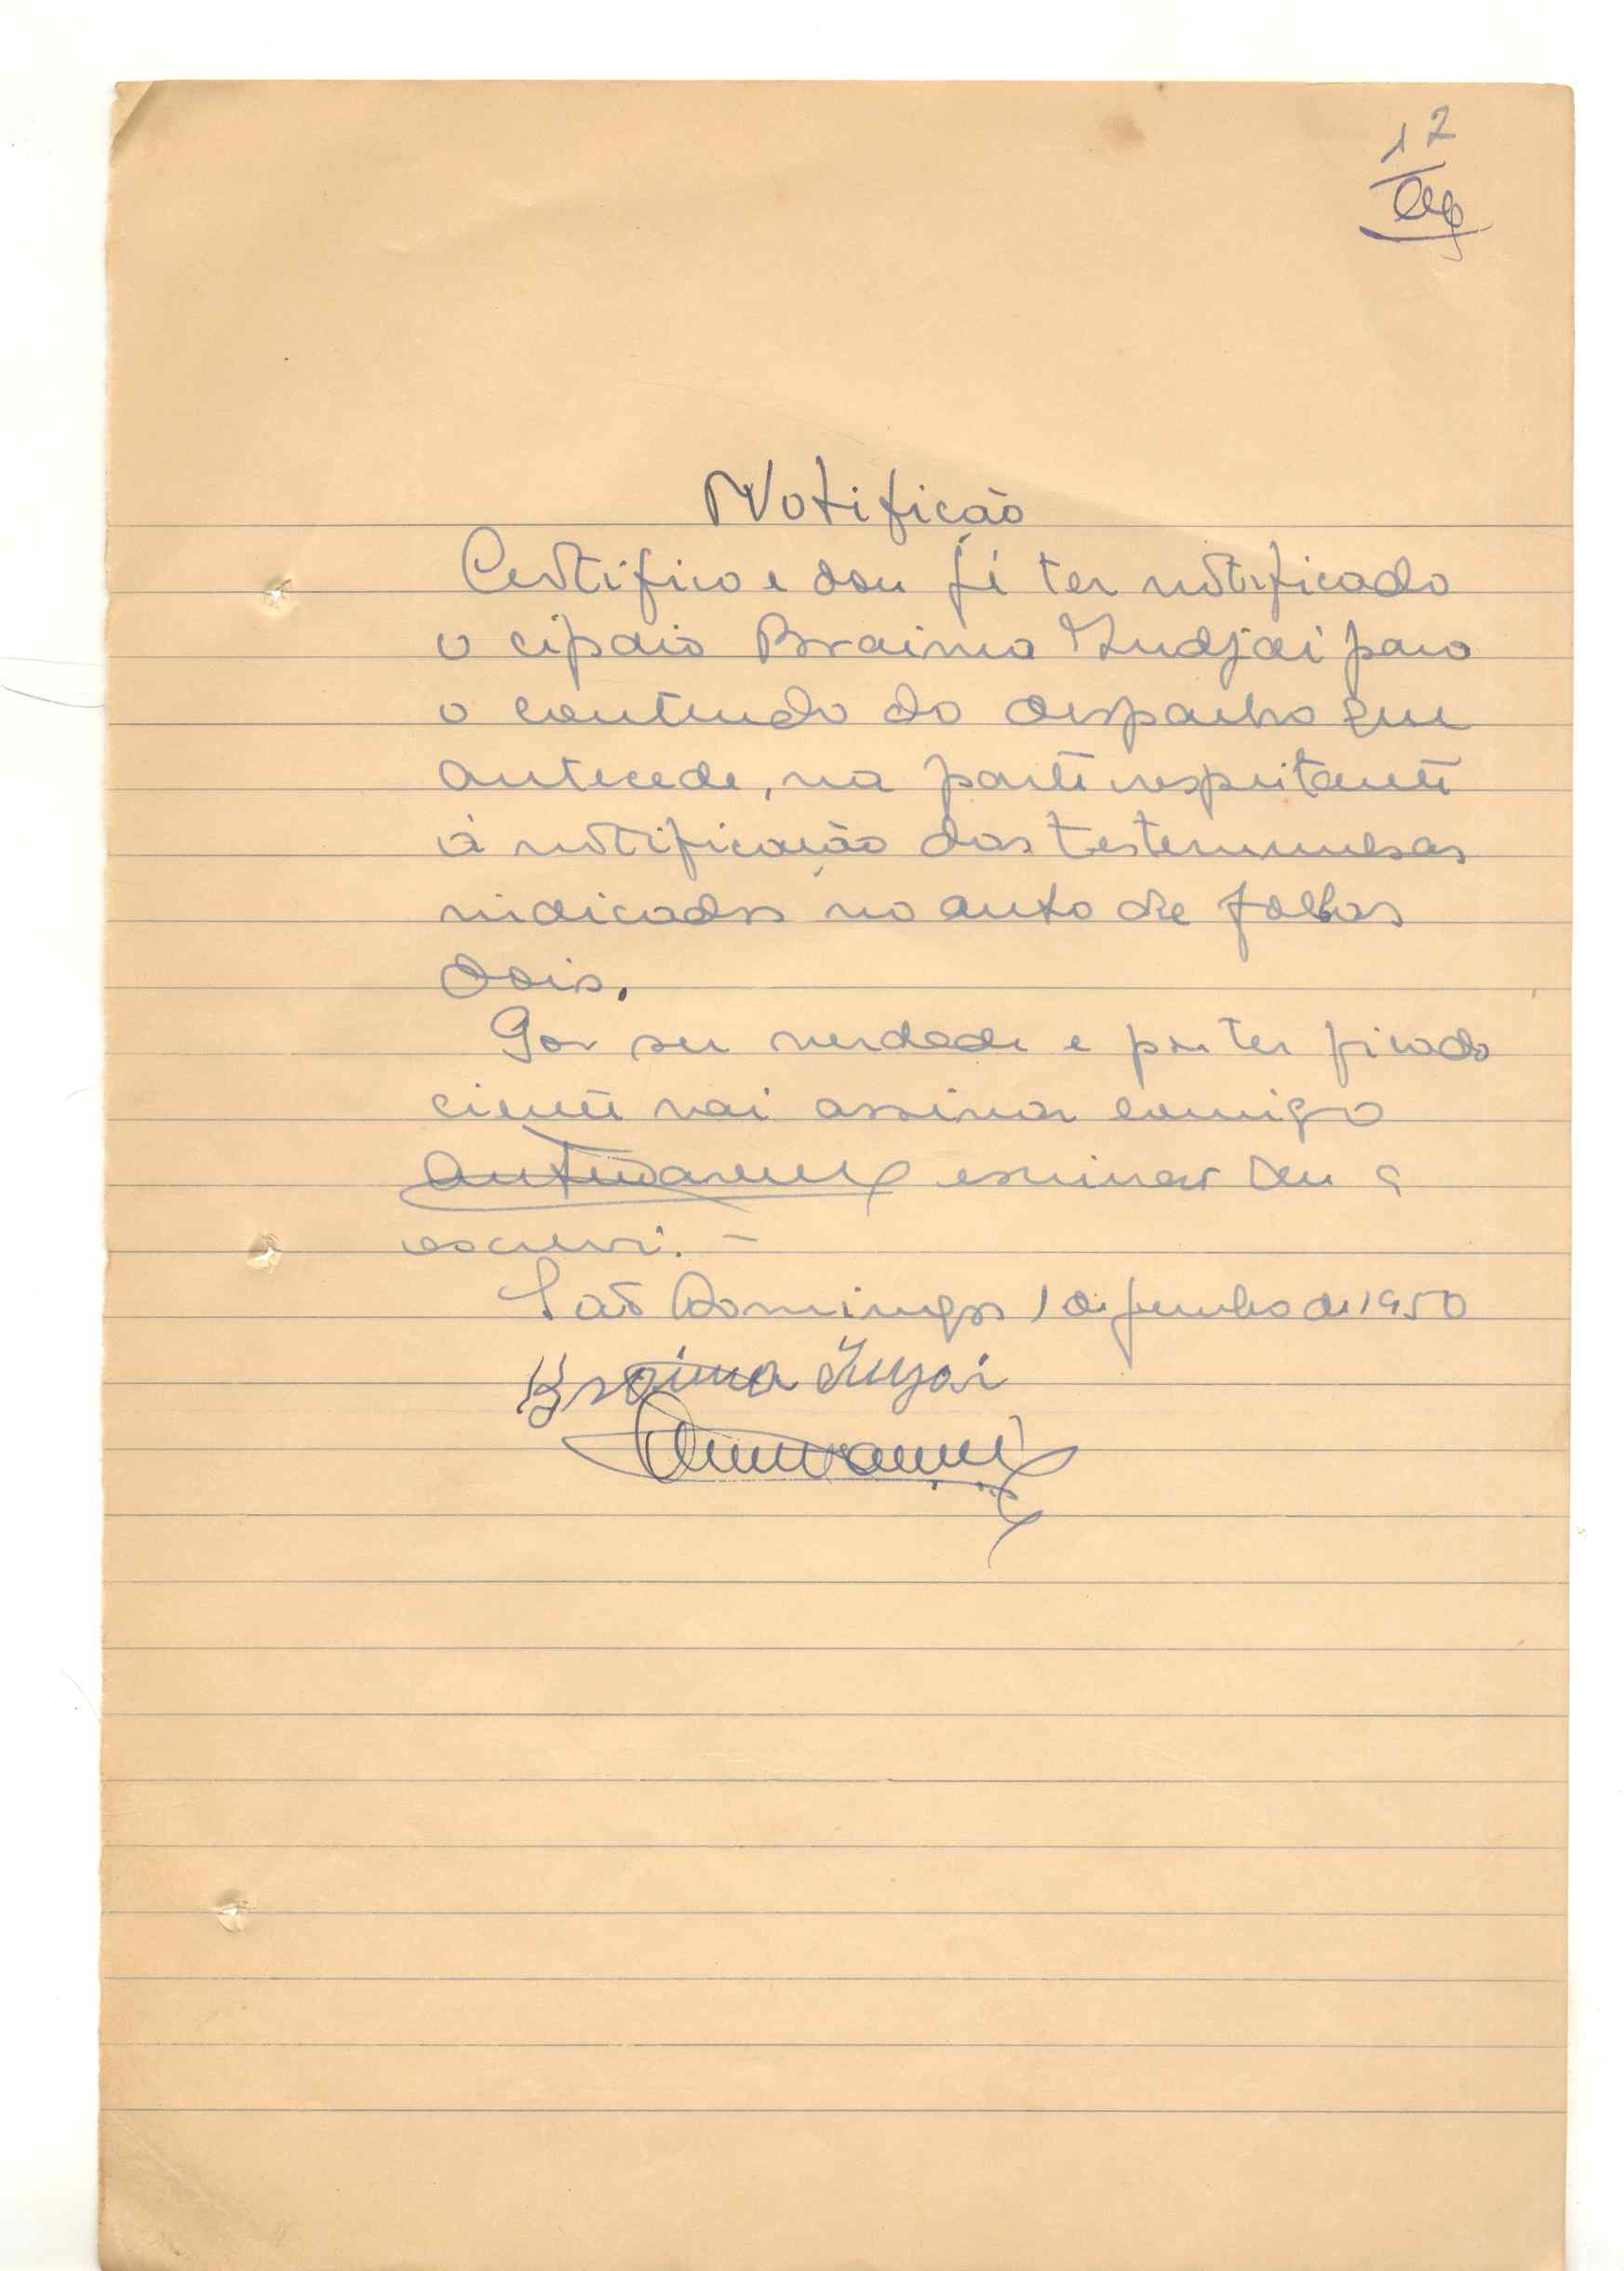 17
Notificação
Certifico e dou fé ter notificado
o cipaio Braima Indjai para
o conteudo do despacho que
antecede, na parte respeitante
à notificação das testemunhas
indicadas no auto de folhas
dois.
Por ser verdade e por ter ficado
ciente vai assinar comigo
escrivão que o
escrevi. -
São Domingos 1 de Junho de 1950
Braima Injai